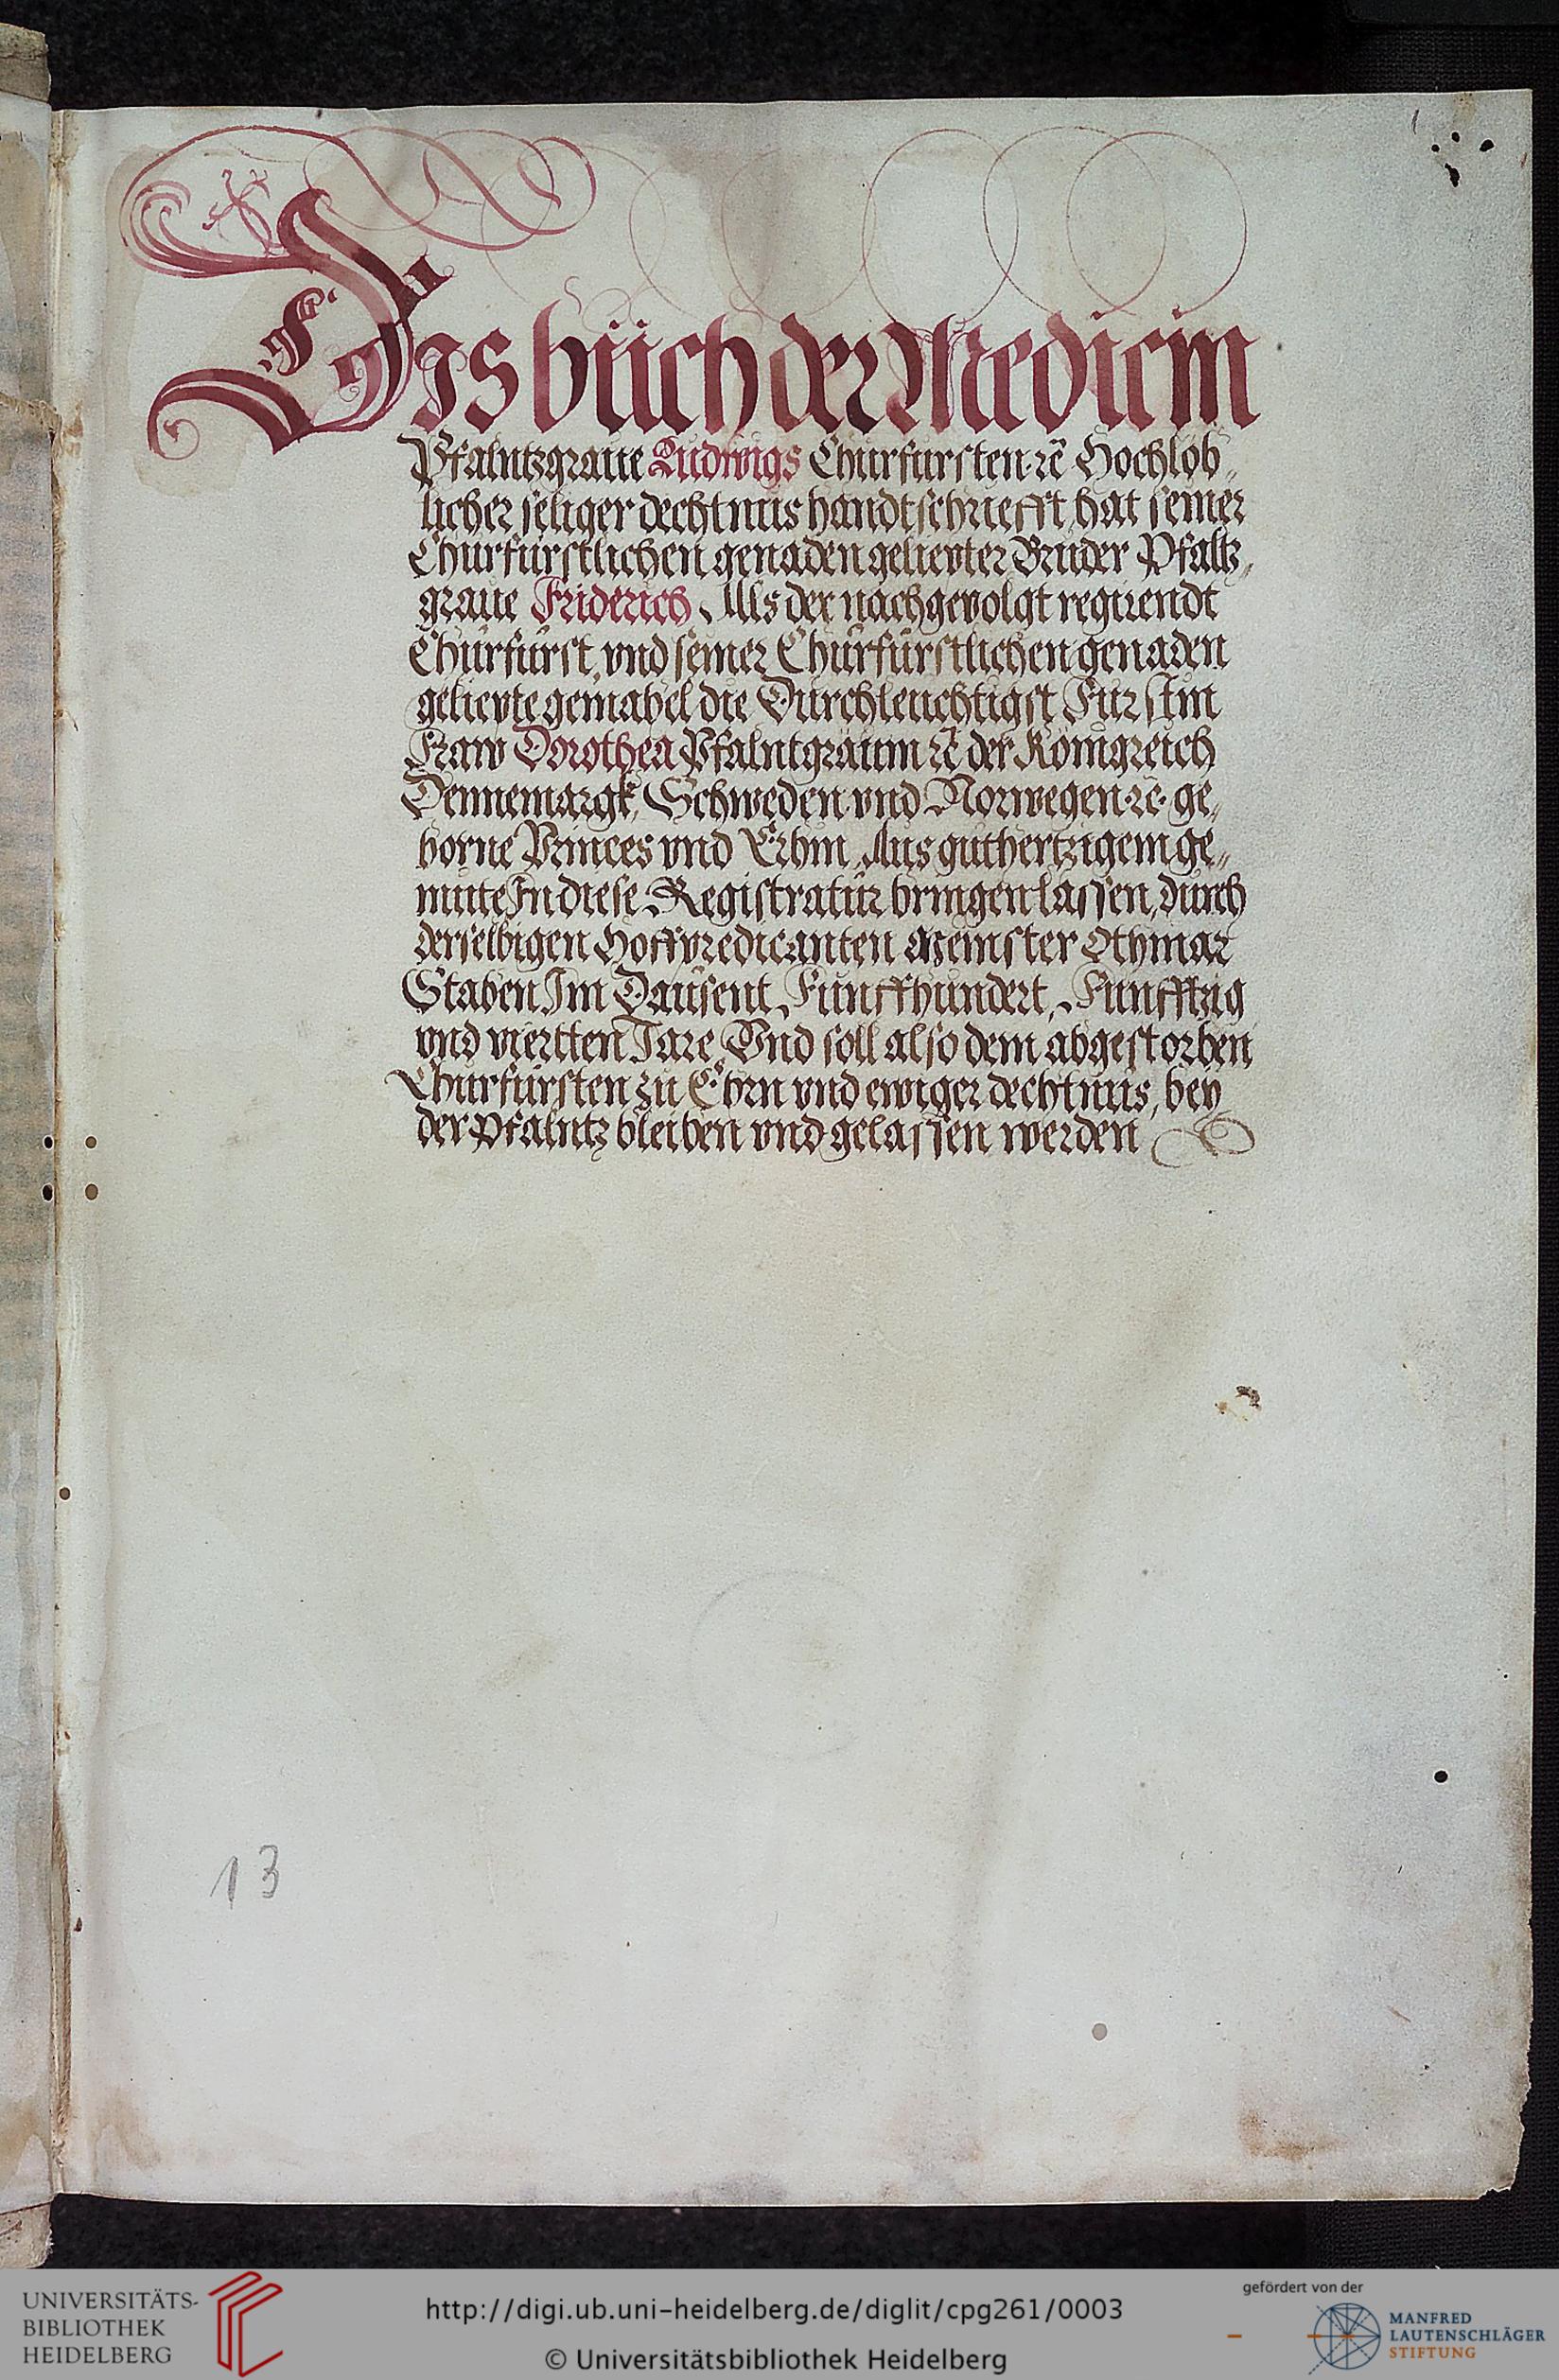 Dis buch der Medicin
Pfalntzgraue Ludwigs Churfursten ꝛc̄ Hochlob„
licher seliger dechtnus handtschriefft, hat seiner
Churfürstlichen genaden geliepter Bruder Pfaltz„
graue Friderich, Als der nachgevolgt regirendt
Churfürst, vnd seiner Churfürstlichen genaden
geliepte gemahel die Durchleuchtigst Furstin
Fraw Dorothea Pfalntgräuin ꝛc̄ der Königreich
Dennemargk, Schweden vnd Norwegen ꝛc̄ ge„
borne Princes vnd Erbin, Aus guthertzigem ge„
mute In diese Registratur bringen lassen, durch
derselbigen Hoffpredicanten Meinster Othmar
Staben Im Dausent, Funffhundert, Funfftzig
vnd viertten Jare, Vnd soll also dem abgestorben
Churfürsten zu Ehrn vnd ewiger dechtnus, bey
der Pfalntz bleiben vnd gelassen werden
13
UNIVERSITÄTS-
BIBLIOTHEK
HEIDELBERG
http://digi.ub.uni-heidelberg.de/diglit/cpg261/0003
© Universitätsbibliothek Heidelberg
gefördert von der
MANFRED
LAUTENSCHLÄGER
STIFTUNG